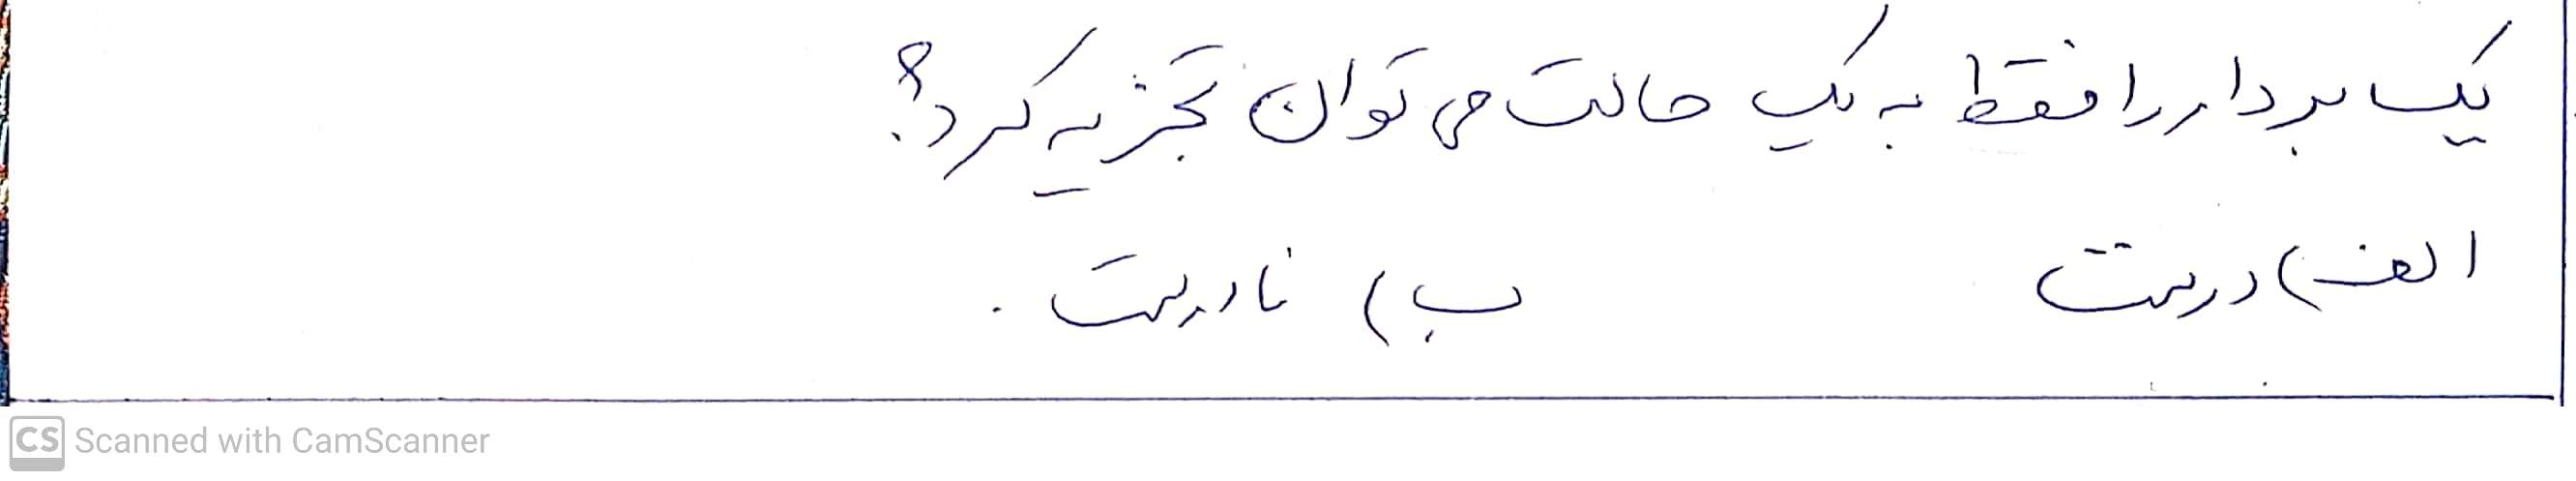 یک بردار را فقط به یک حالت می توان تجزیه کرد؟
الف) درست ب) نادرست.
CS Scanned with CamScanner